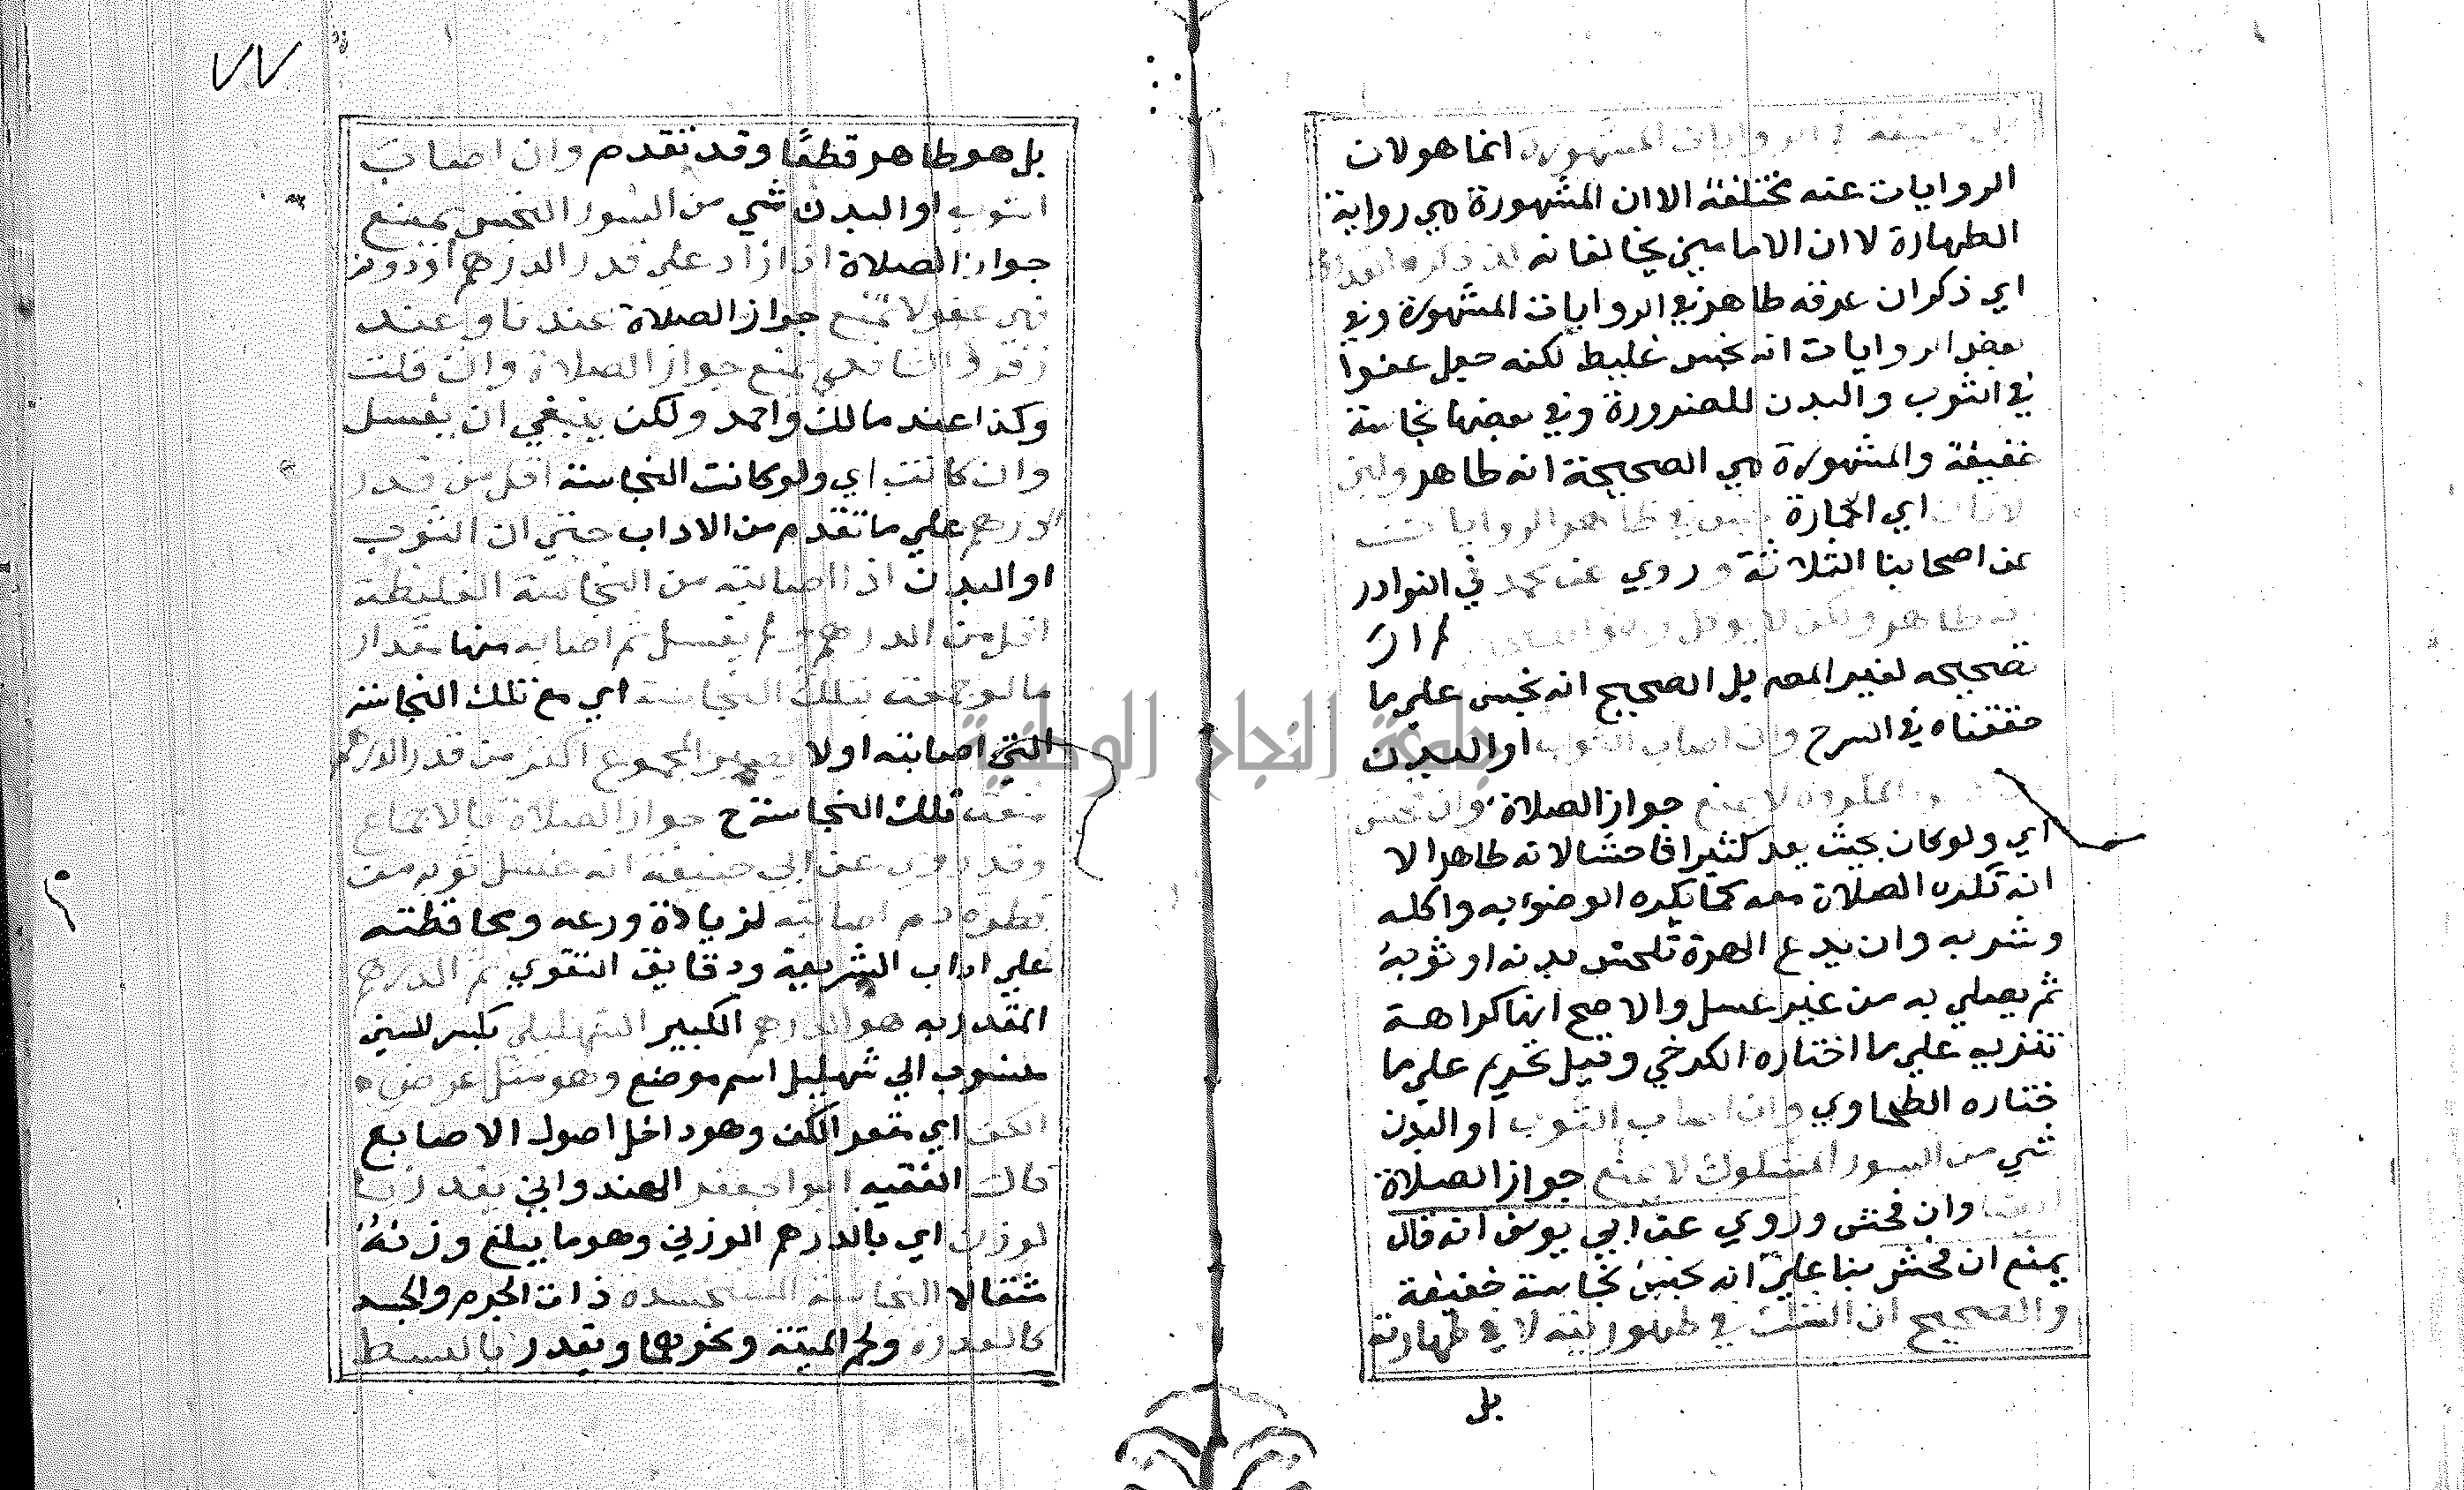 ابي حنيفة في الروايات المشهورة انما هو لان
الروايات عنه مختلفة الا ان المشهورة هي رواية
الطهارة لا ان الامامين يخالفانه
اي ذكر ان عرقه طاهر في الروايات المشهورة وفي
بعض الروايات انه نجس غليظ لكنه جعل عفوا
في الثوب والبدن للضرورة وفي بعضها نجاسة
خفيفة والمشهورة هي الصحيحة انه طاهر ولبن
لاتان اي الحمارة نجس في ظاهر الروايات
عن اصحابنا الثلاثة وروي عن محمد في النوادر
نه طاهر ولكن لا يوكل لم ار
تصحيحه لغير المص بل الصحيح انه نجس علي ما
حققناه في الشرح وان اصاب الثوب او البدن
المكروه لا يمنع جواز الصلاة وان فحش
اي ولو كان بحيث يعد كثيرا فاحشا لانه طاهر الا
انه تكره الصلاة معه كما يكره الوضوا به واكله
وشربه وان يدع الهرة تلحس بدنه او ثوبه
ثم يصلي به من غير غسل والاصح انها كراهة
تنزيه علي ما اختاره الكرخي وقيل تحريم علي ما
ختاره الطحاوي وان اصاب الثوب او البدن
شي من السور المشكوك لا يمنع جواز الصلاة
ايضا وان فحش وروي عن ابي يوسف انه قال
يمنع ان فحش بنا علي انه نجس نجاسة خفيفة
والصحيح ان الشك في طهوريته لا في طهارته
بل
٧٧
بل هو طاهر قطعًا وقد تقدم وان اصاب
الثوب او البدن شي من السور النجس يمنع
جواز الصلاة اذا زاد علي قدر الدرهم او دونه
فهي عفو لا تمنع جواز الصلاة عندنا وعند
زفر والشافعي تمنع جواز الصلاة وان قلت
وكذا عند مالك واحمد ولكن ينبغي ان يغسل
وان كانت اي ولو كانت النجاسة اقل من قدر
الدرهم علي ما تقدم من الاداب حتي ان الثوب
او البدن اذا اصابته من النجاسة الغليظة
اقل من الدرهم ولم يغسل ثم اصابه منها مقدار
ما لو جمعت بتلك النجاسة اي مع تلك النجاسة
التي اصابته اولا يصير المجموع اكثر من قدر الدرهم
منعت تلك النجاسة ح جواز الصلاة بالاجماع
وقد روي عن ابي حنيفة انه غسل ثوبه من
قطرة دم اصابته لزيادة ورعه ومحافظته
علي اداب الشريعة ودقايق التقوي ثم الدرهم
المقدر به هو الدرهم الكبير الشهليلي بكسر الشين
منسوب الي شهليل اسم موضع وهو مثل عرض
الكف اي مقعر الكف وهو داخل اصول الاصابع
قال الفقيه ابوا جعفر الهندواني يقدر
لوزن اي بالدرهم الوزني وهو ما يبلغ وزنهُ
مثقالا النجاسة المتجسدة ذات الجرم والجسد
كالعذرة ولحم الميتة ونحوهما ويقدر بالبسط
جامعة النجاح الوطنية